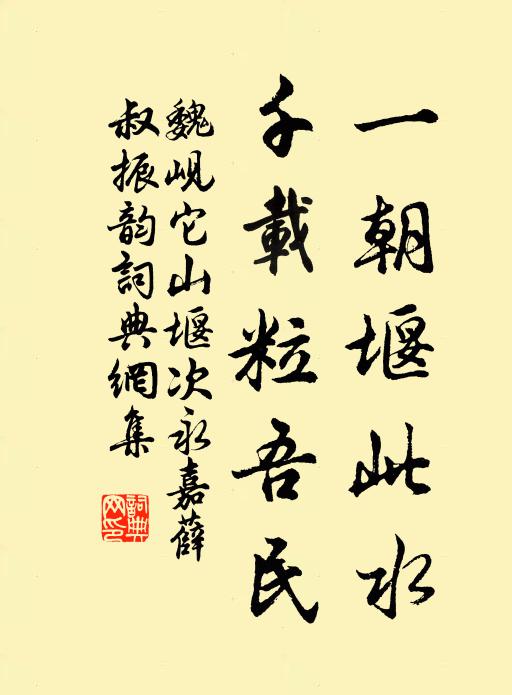 一朝堰此水
千載粒吾民
魏峴它山堰次永嘉薛
叔振韵詞典網集
詞典網印